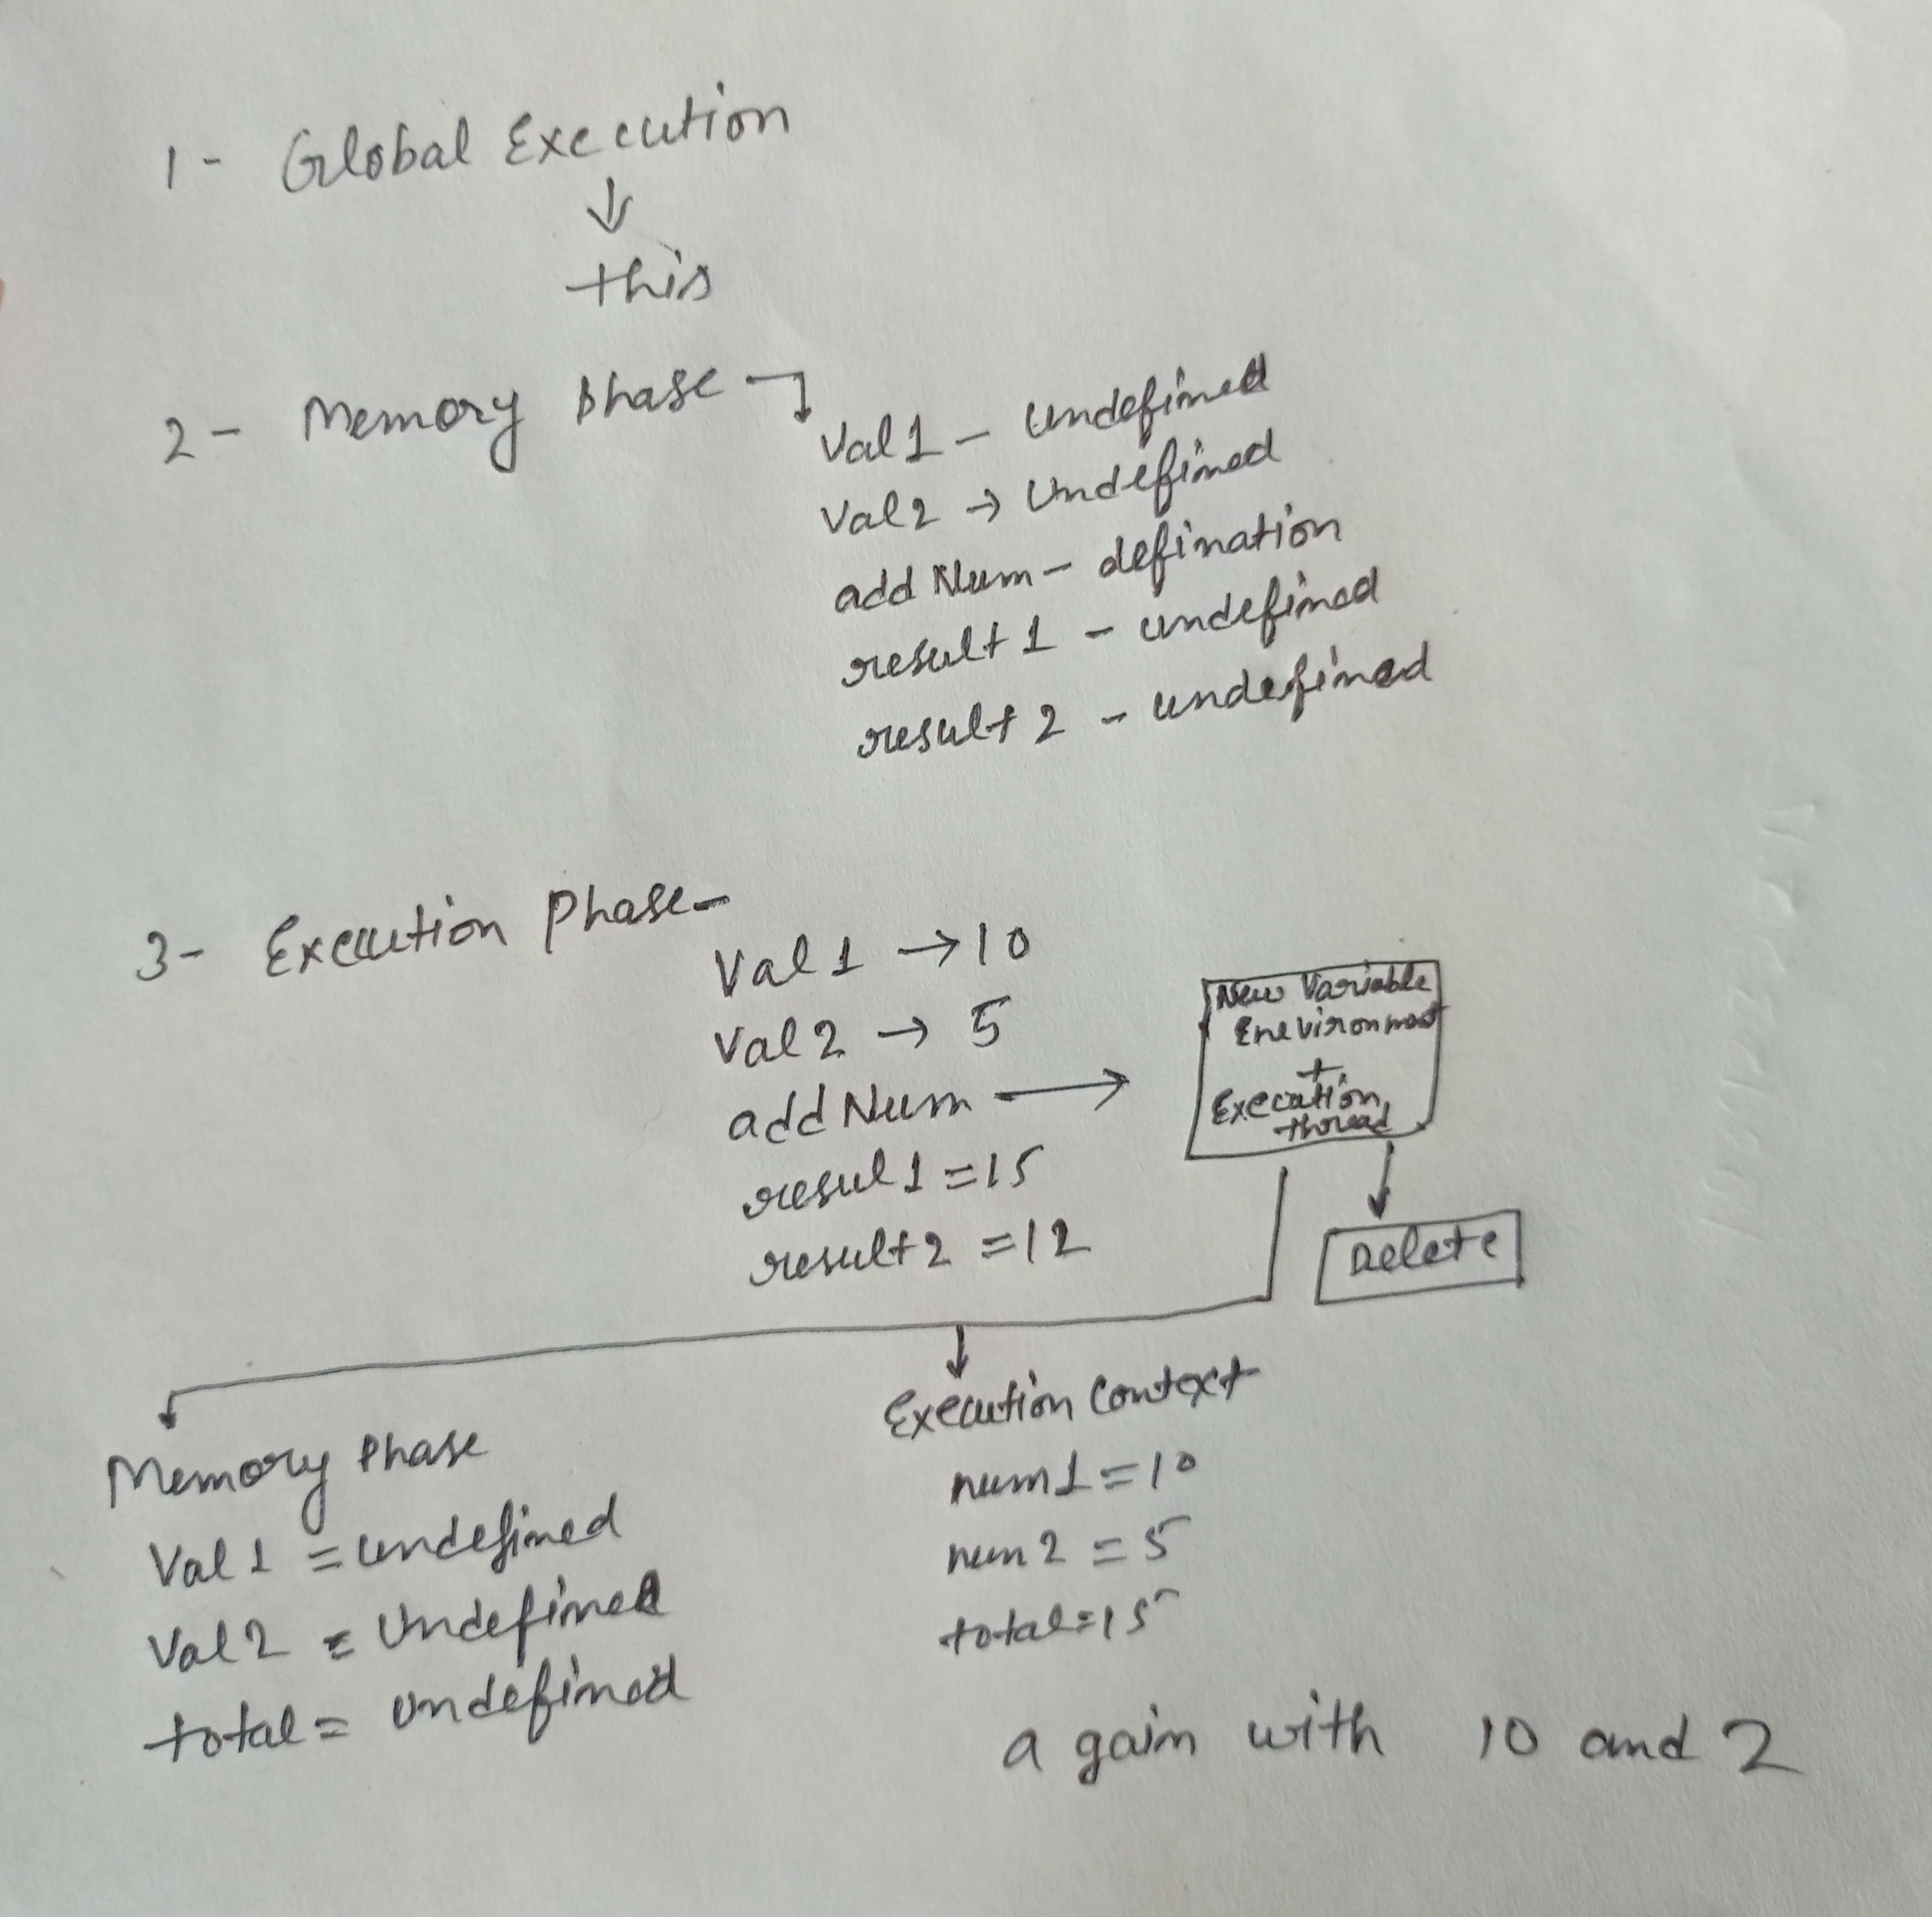 1- Global Execution
↓
this
2- Memory phase
Val1 - undefined
Val2 → Undefined
addNum - defination
result1 - undefined
result2 - undefined
3- Execution Phase-
Val1 → 10
Val2 → 5
addNum →
resul1 = 15
result2 = 12
New Variable
Enevironment
+
Execution
thread
Delete
Memory Phase
Val1 = undefined
Val2 = Undefined
total = undefined
Execution Context
num1 = 10
num2 = 5
total = 15
again with 10 and 2